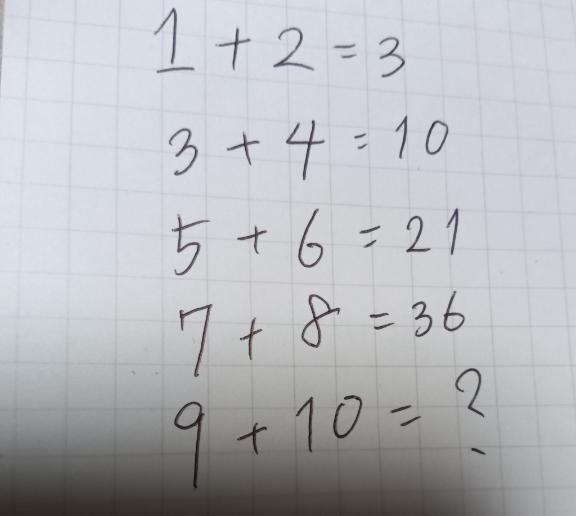 1 + 2 = 3
3 + 4 = 10
5 + 6 = 21
7 + 8 = 36
9 + 10 = ?